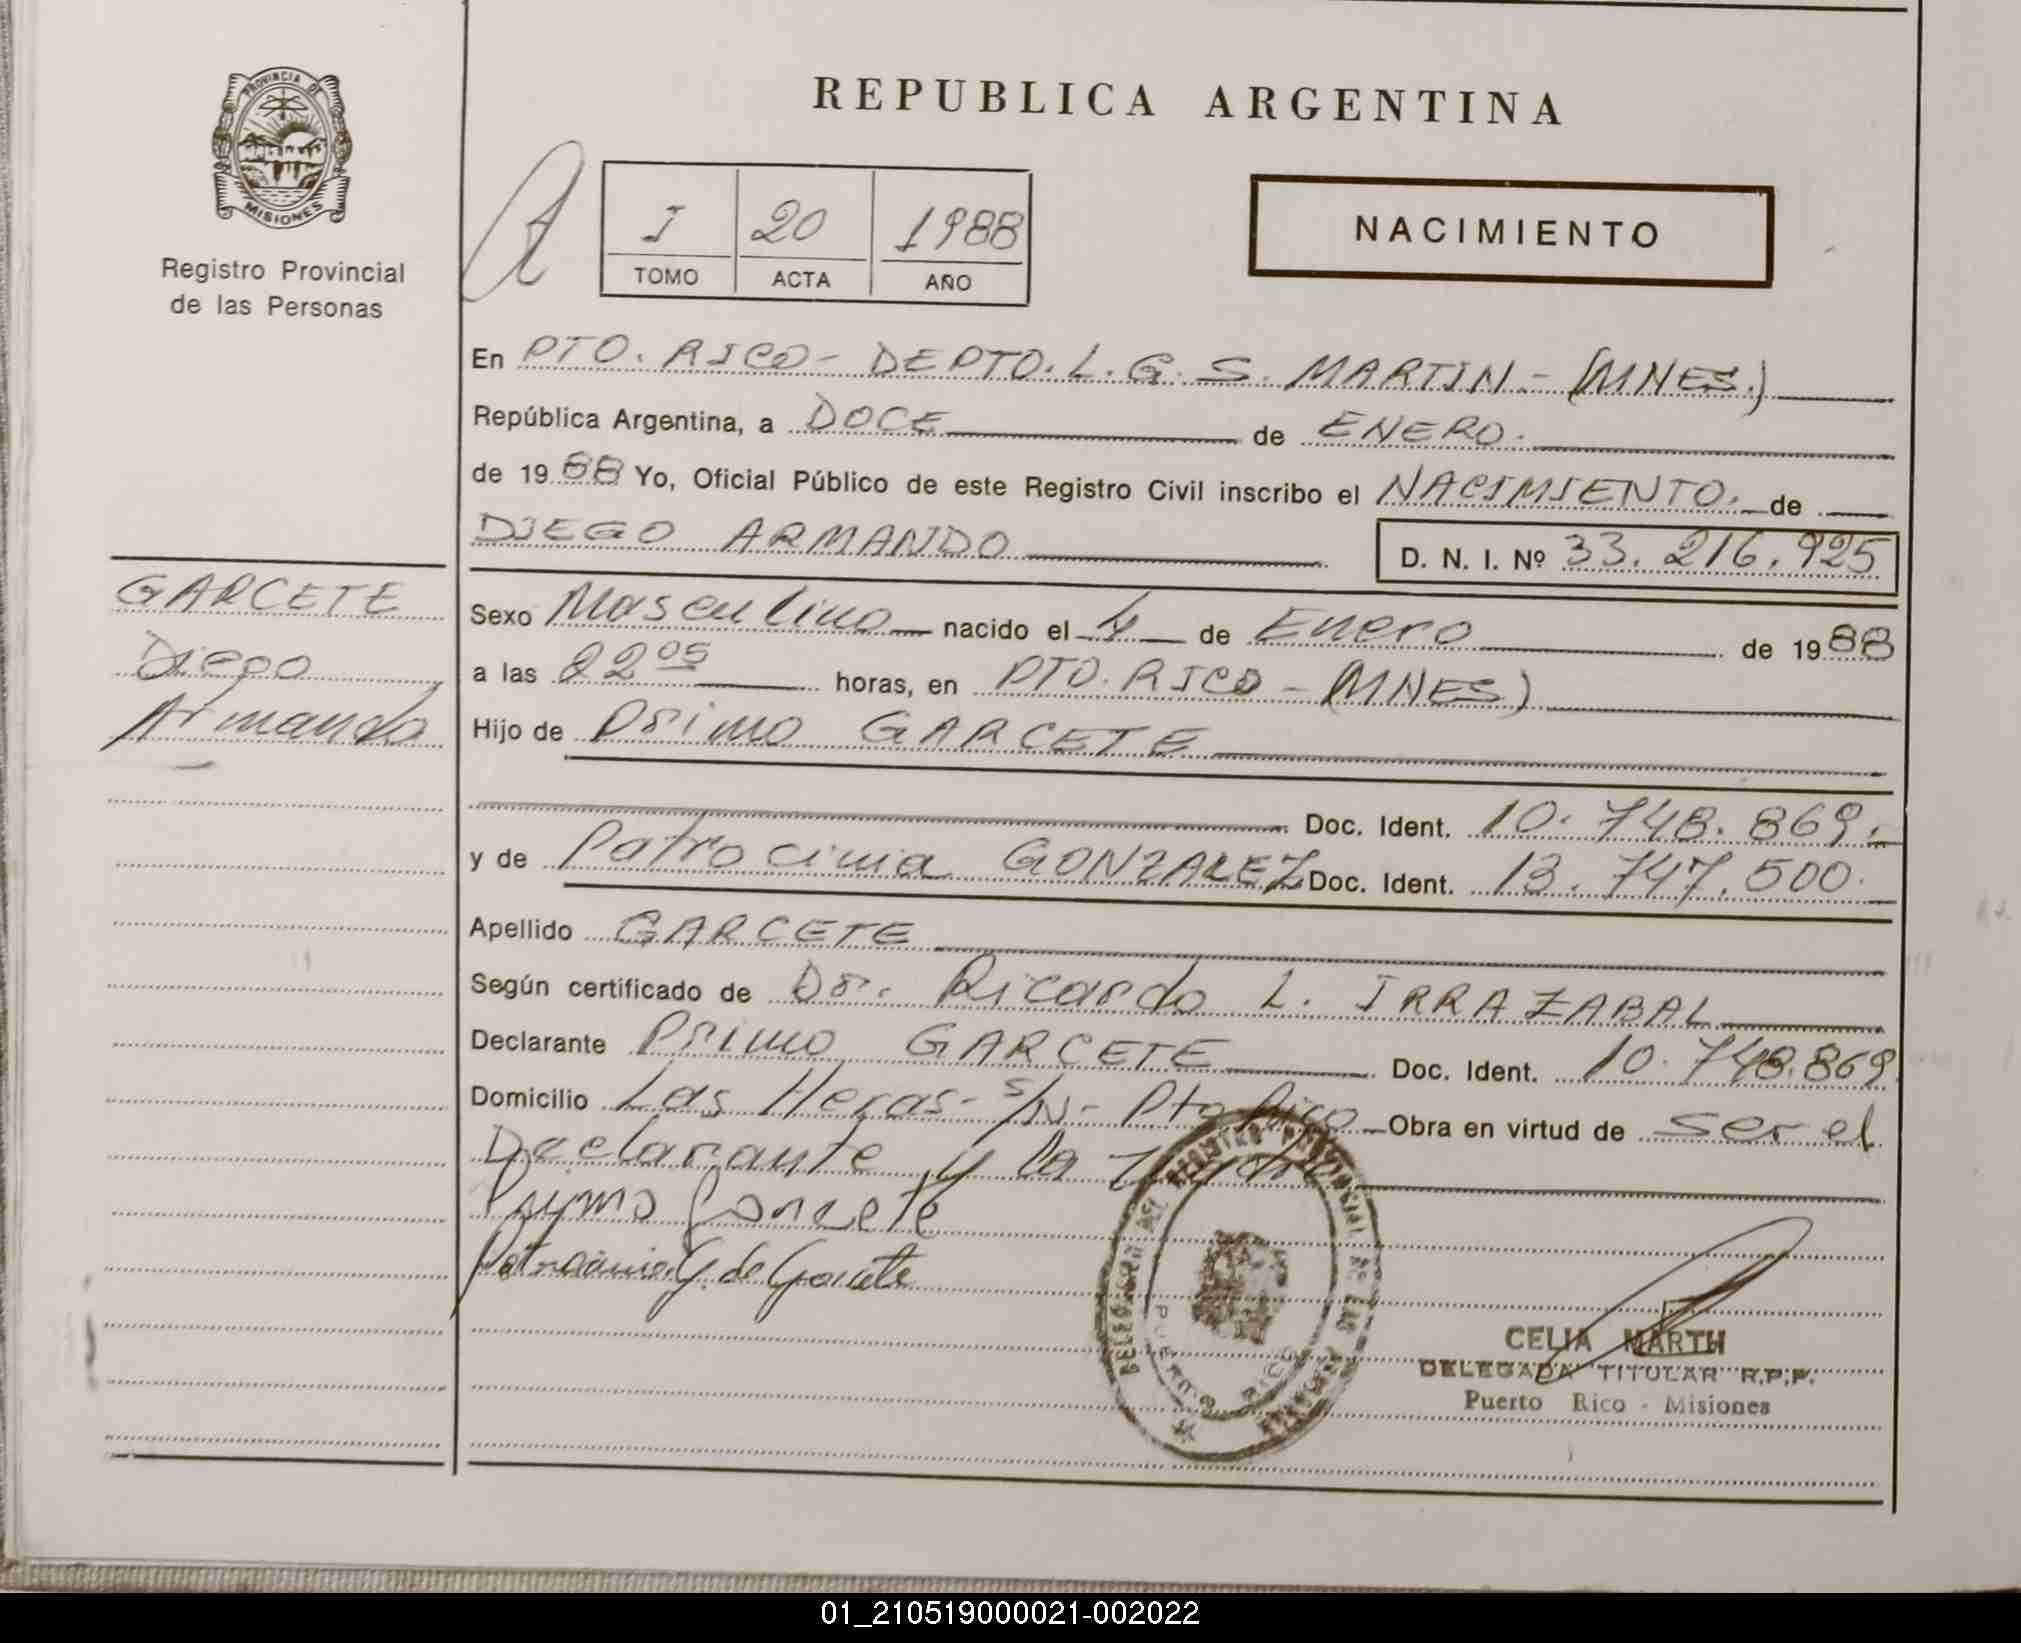 PROVINCIA DE
MISIONES
Registro Provincial
de las Personas
REPUBLICA ARGENTINA
I 20 1988
TOMO ACTA AÑO
NACIMIENTO
En PTO. RICO - DEPTO. L. G. S. MARTIN - (MNES.)
República Argentina, a DOCE de ENERO.
de 1988 Yo, Oficial Público de este Registro Civil inscribo el NACIMIENTO. de
DIEGO ARMANDO D. N. I. Nº 33.216.925
GARCETE
Diego
Armando
Sexo Masculino nacido el 4 de Enero de 1988
a las 22 05 horas, en PTO. RICO - (MNES)
Hijo de Primo GARCETE
Doc. Ident. 10.748.869.-
y de Patrocinia GONZALEZ Doc. Ident. 13.747.500.
Apellido GARCETE
Según certificado de Dr. Ricardo L. IRRAZABAL
Declarante Primo GARCETE Doc. Ident. 10.748.869
Domicilio Las Heras - S/N - Pto Rico - Obra en virtud de ser el
Declarante y la
Prymo Garcete
Patrocinia G. de Garcete
PUERTO RICO
CELIA MARTH
DELEGADA TITULAR R.P.P.
Puerto Rico - Misiones
01_210519000021-002022